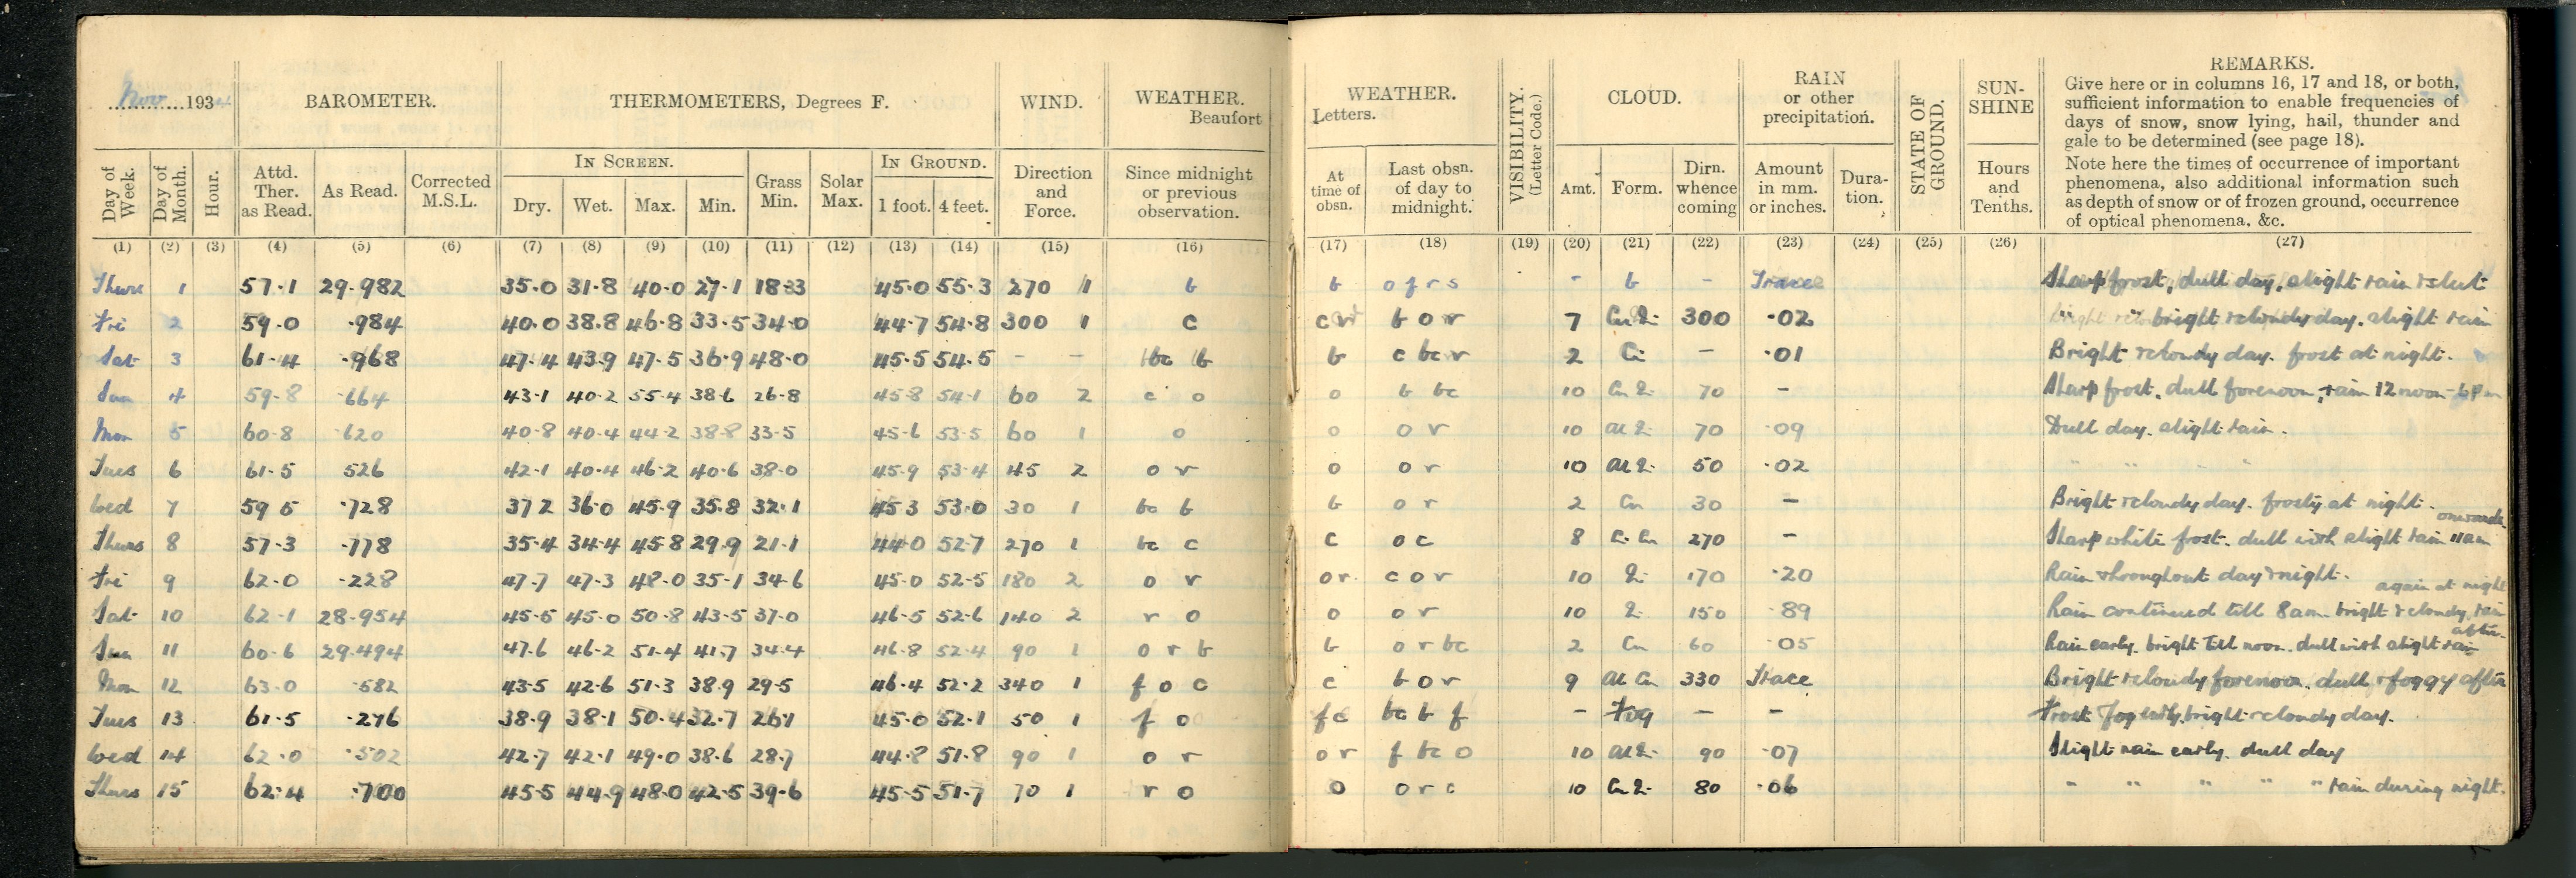 Nov 1934 BAROMETER. THERMOMETERS, Degrees F. WIND. WEATHER. Beaufort
Day of Week. Day of Month. Hour. Attd. Ther. as Read. As Read. Corrected M.S.L. IN SCREEN. Dry. Wet. Max. Min. Grass Min. Solar Max. IN GROUND. 1 foot. 4 feet. Direction and Force. Since midnight or previous observation.
(1) (2) (3) (4) (5) (6) (7) (8) (9) (10) (11) (12) (13) (14) (15) (16)
Thurs 1 57.1 29.982 35.0 31.8 40.0 27.1 18.3 45.0 55.3 270 1 b
Fri 2 59.0 .984 40.0 38.8 46.8 33.5 34.0 44.7 54.8 300 1 c
Sat 3 61.4 .968 47.4 43.9 47.5 36.9 48.0 45.5 54.5 - - bc b
Sun 4 59.8 .664 43.1 40.2 55.4 38.6 26.8 45.8 54.1 60 2 c o
Mon 5 60.8 .620 40.8 40.4 44.2 38.8 33.5 45.6 53.5 60 1 o
Tues 6 61.5 526 42.1 40.4 46.2 40.6 38.0 45.9 53.4 45 2 o r
Wed 7 59 5 .728 37 2 36.0 45.9 35.8 32.1 45 3 53.0 30 1 bc b
Thurs 8 57.3 .778 35.4 34.4 45.8 29.9 21.1 44.0 52.7 270 1 bc c
Fri 9 62.0 .228 47.7 47.3 48.0 35.1 34.6 45.0 52.5 180 2 o r
Sat 10 62.1 28.954 45.5 45.0 50.8 43.5 37.0 46.5 52.6 140 2 r o
Sun 11 60.6 29.494 47.6 46.2 51.4 41.7 34.4 46.8 52.4 90 1 o r b
Mon 12 63.0 .582 43.5 42.6 51.3 38.9 29.5 46.4 52.2 340 1 f o c
Tues 13 61.5 .276 38.9 38.1 50.4 32.7 26.1 45.0 52.1 50 1 f o
Wed 14 62.0 .502 42.7 42.1 49.0 38.6 28.7 44.8 51.8 90 1 o r
Thurs 15 62.4 .700 45.5 44.9 48.0 42.5 39.6 45.5 51.7 70 1 r o
WEATHER. Letters. VISIBILITY. (Letter Code.) CLOUD. RAIN or other precipitation. STATE OF GROUND. SUN-SHINE REMARKS.
Give here or in columns 16, 17 and 18, or both,
sufficient information to enable frequencies of
days of snow, snow lying, hail, thunder and
gale to be determined (see page 18).
Note here the times of occurrence of important
phenomena, also additional information such
as depth of snow or of frozen ground, occurrence
of optical phenomena, &c.
At time of obsn. Last obsn. of day to midnight. Amt. Form. Dirn. whence coming Amount in mm. or inches. Dura-tion. Hours and Tenths.
(17) (18) (19) (20) (21) (22) (23) (24) (25) (26) (27)
b o f r s - b - Trace Sharp frost, dull day, slight rain & sleet
c b o r 7 300 .02 bright & cloudy day. slight rain
b c bc r 2 Ci - .01 Bright & cloudy day. frost at night.
o b bc 10 70 - Sharp frost. dull forenoon, rain 12 noon - 6 pm
o o r 10 70 .09 Dull day. slight rain.
o o r 10 50 .02 " " " "
b o r 2 Cu 30 - Bright & cloudy day. frosty at night.
c o c 8 Ci. Cu 270 - Sharp white frost. dull with slight rain 11am onwards
or c o r 10 170 .20 Rain throughout day & night.
o o r 10 150 .89 Rain continued till 8am. bright & cloudy, rain again at night
b o r bc 2 Cu 60 .05 Rain early. bright till noon. dull with slight rain after.
c b o r 9 Al Cu 330 Trace Bright & cloudy forenoon, dull & foggy after
f bc b f - Fog - - Frost fog early, bright & cloudy day.
o r f bc o 10 90 .07 Slight rain early. dull day
o o r c 10 80 .06 " " " " " rain during night.